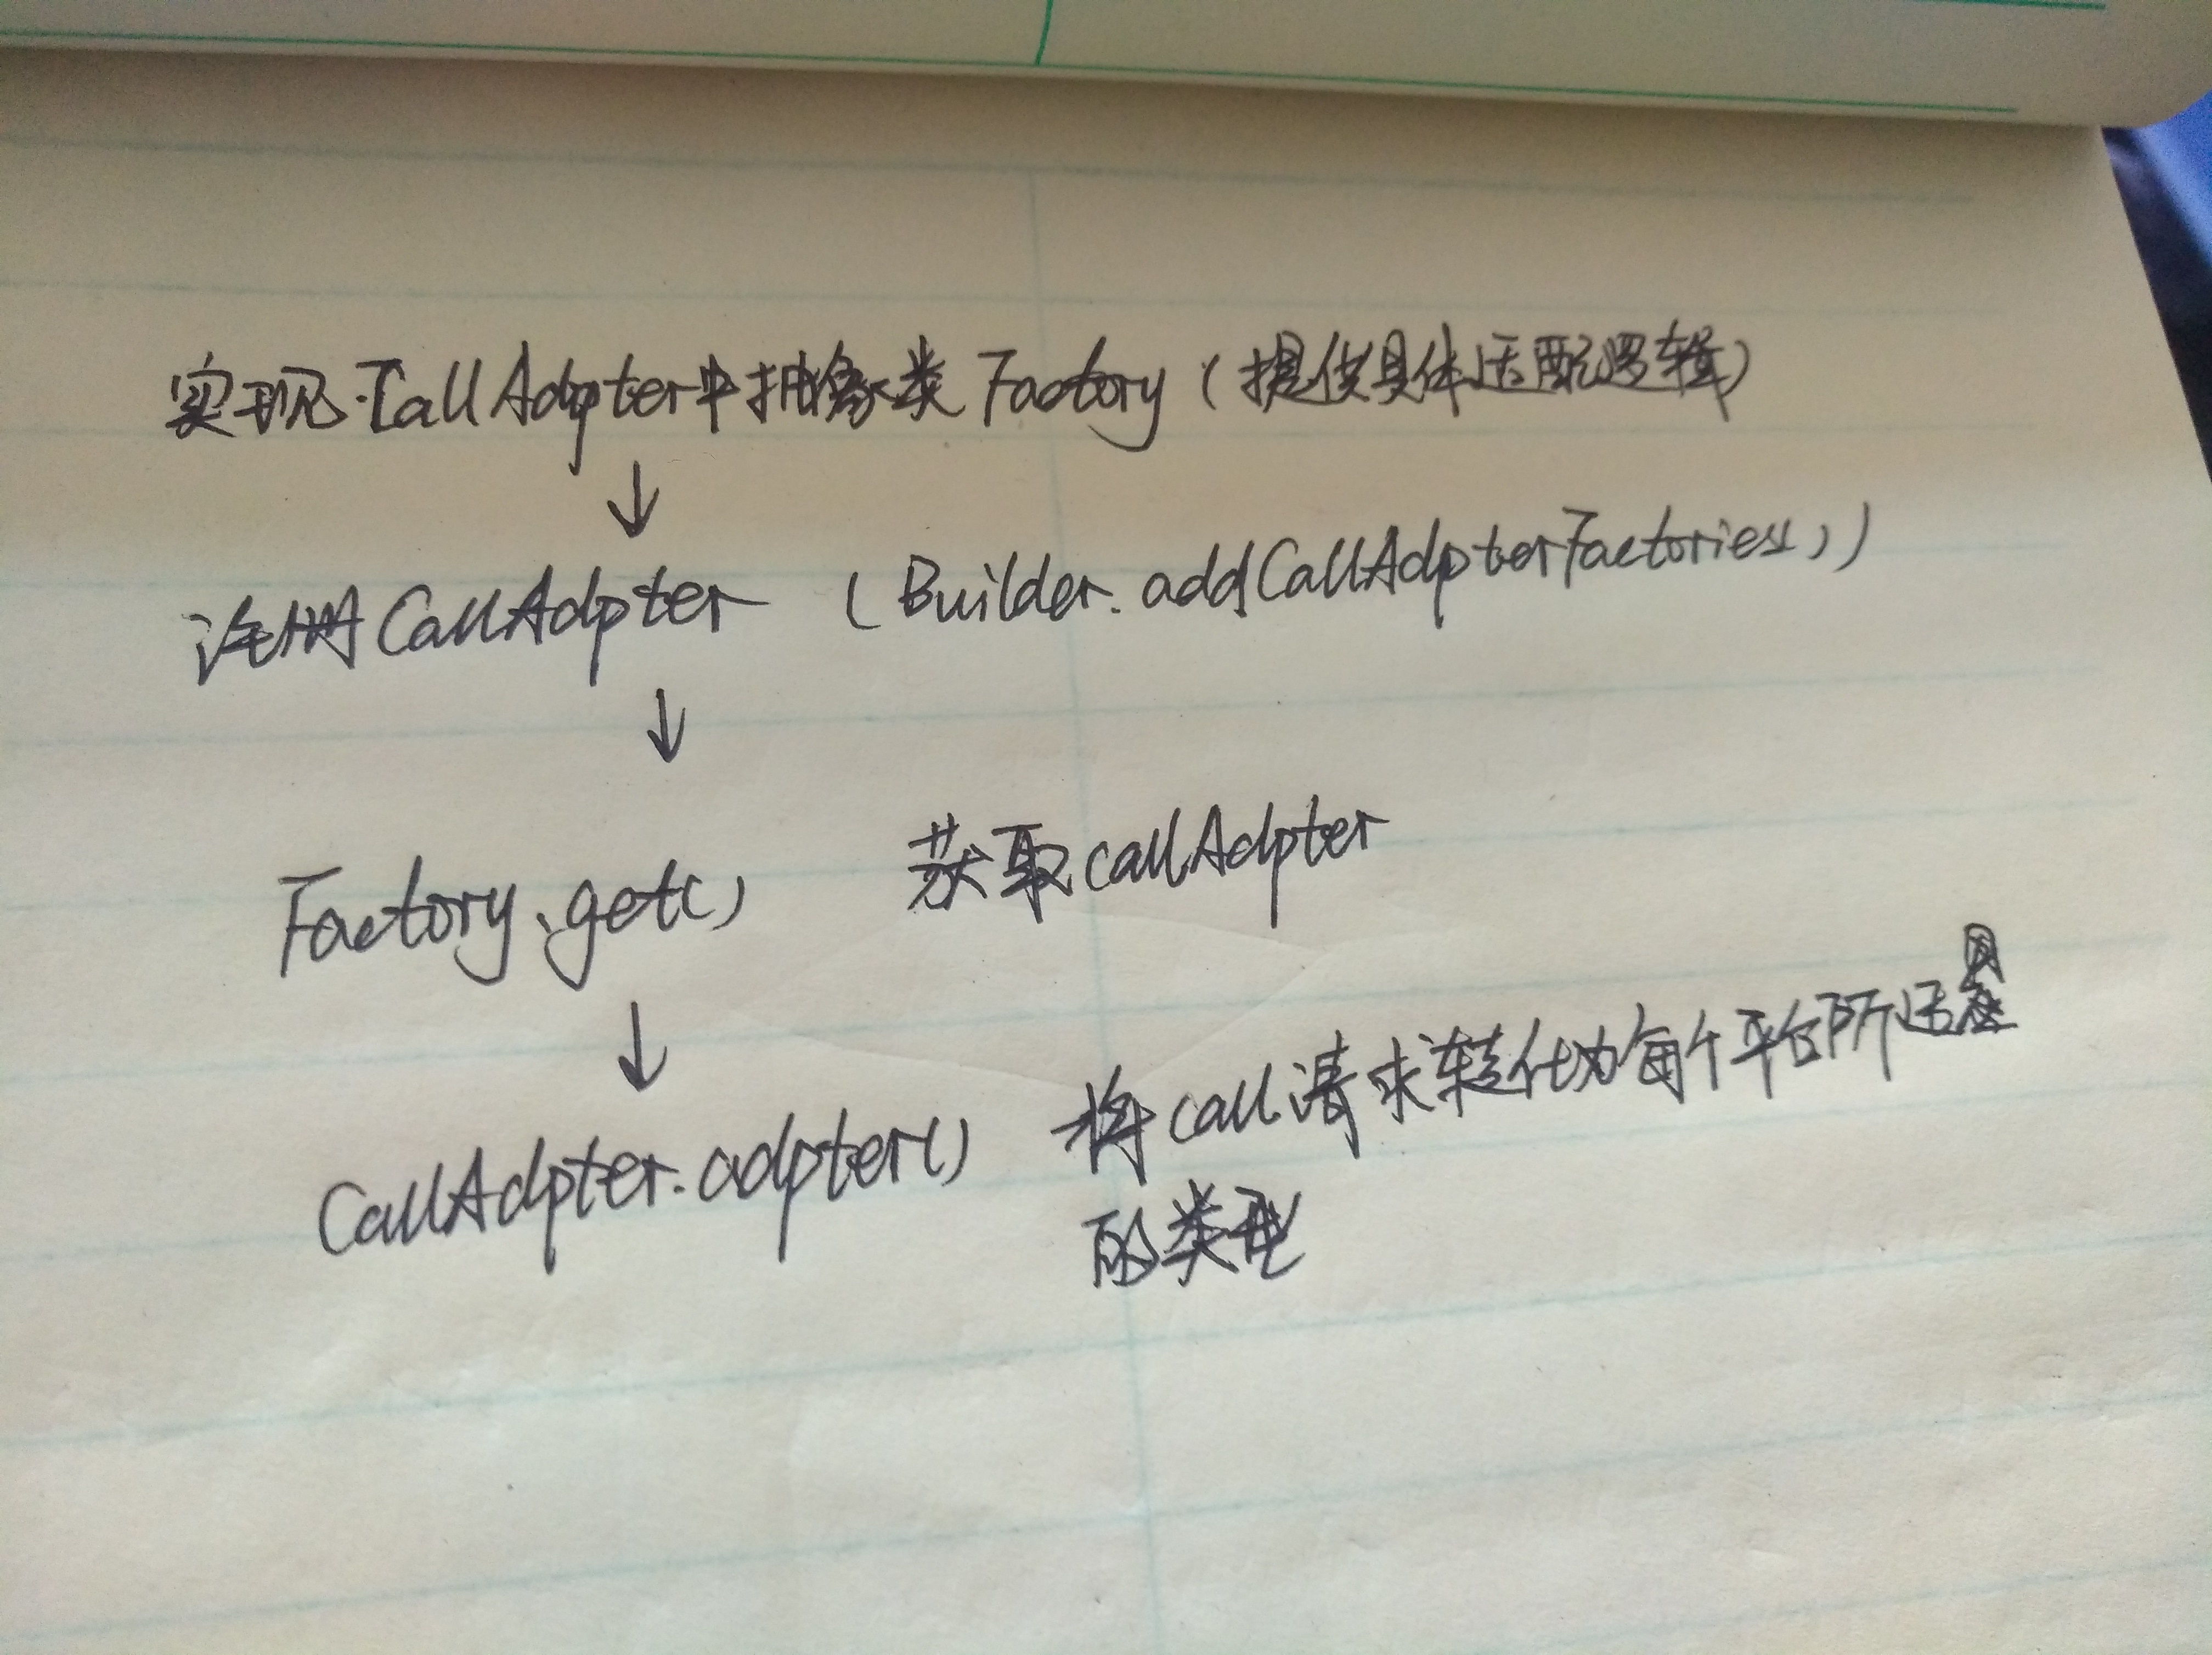 实现CallAdpter中抽象类Factory(提供具体适配逻辑)
↓
注册CallAdpter (Builder.addCallAdpterFactories())
↓
Factory.get() 获取callAdpter
↓
CallAdpter.adpter() 将call请求转化为每个平台所适用
的类型